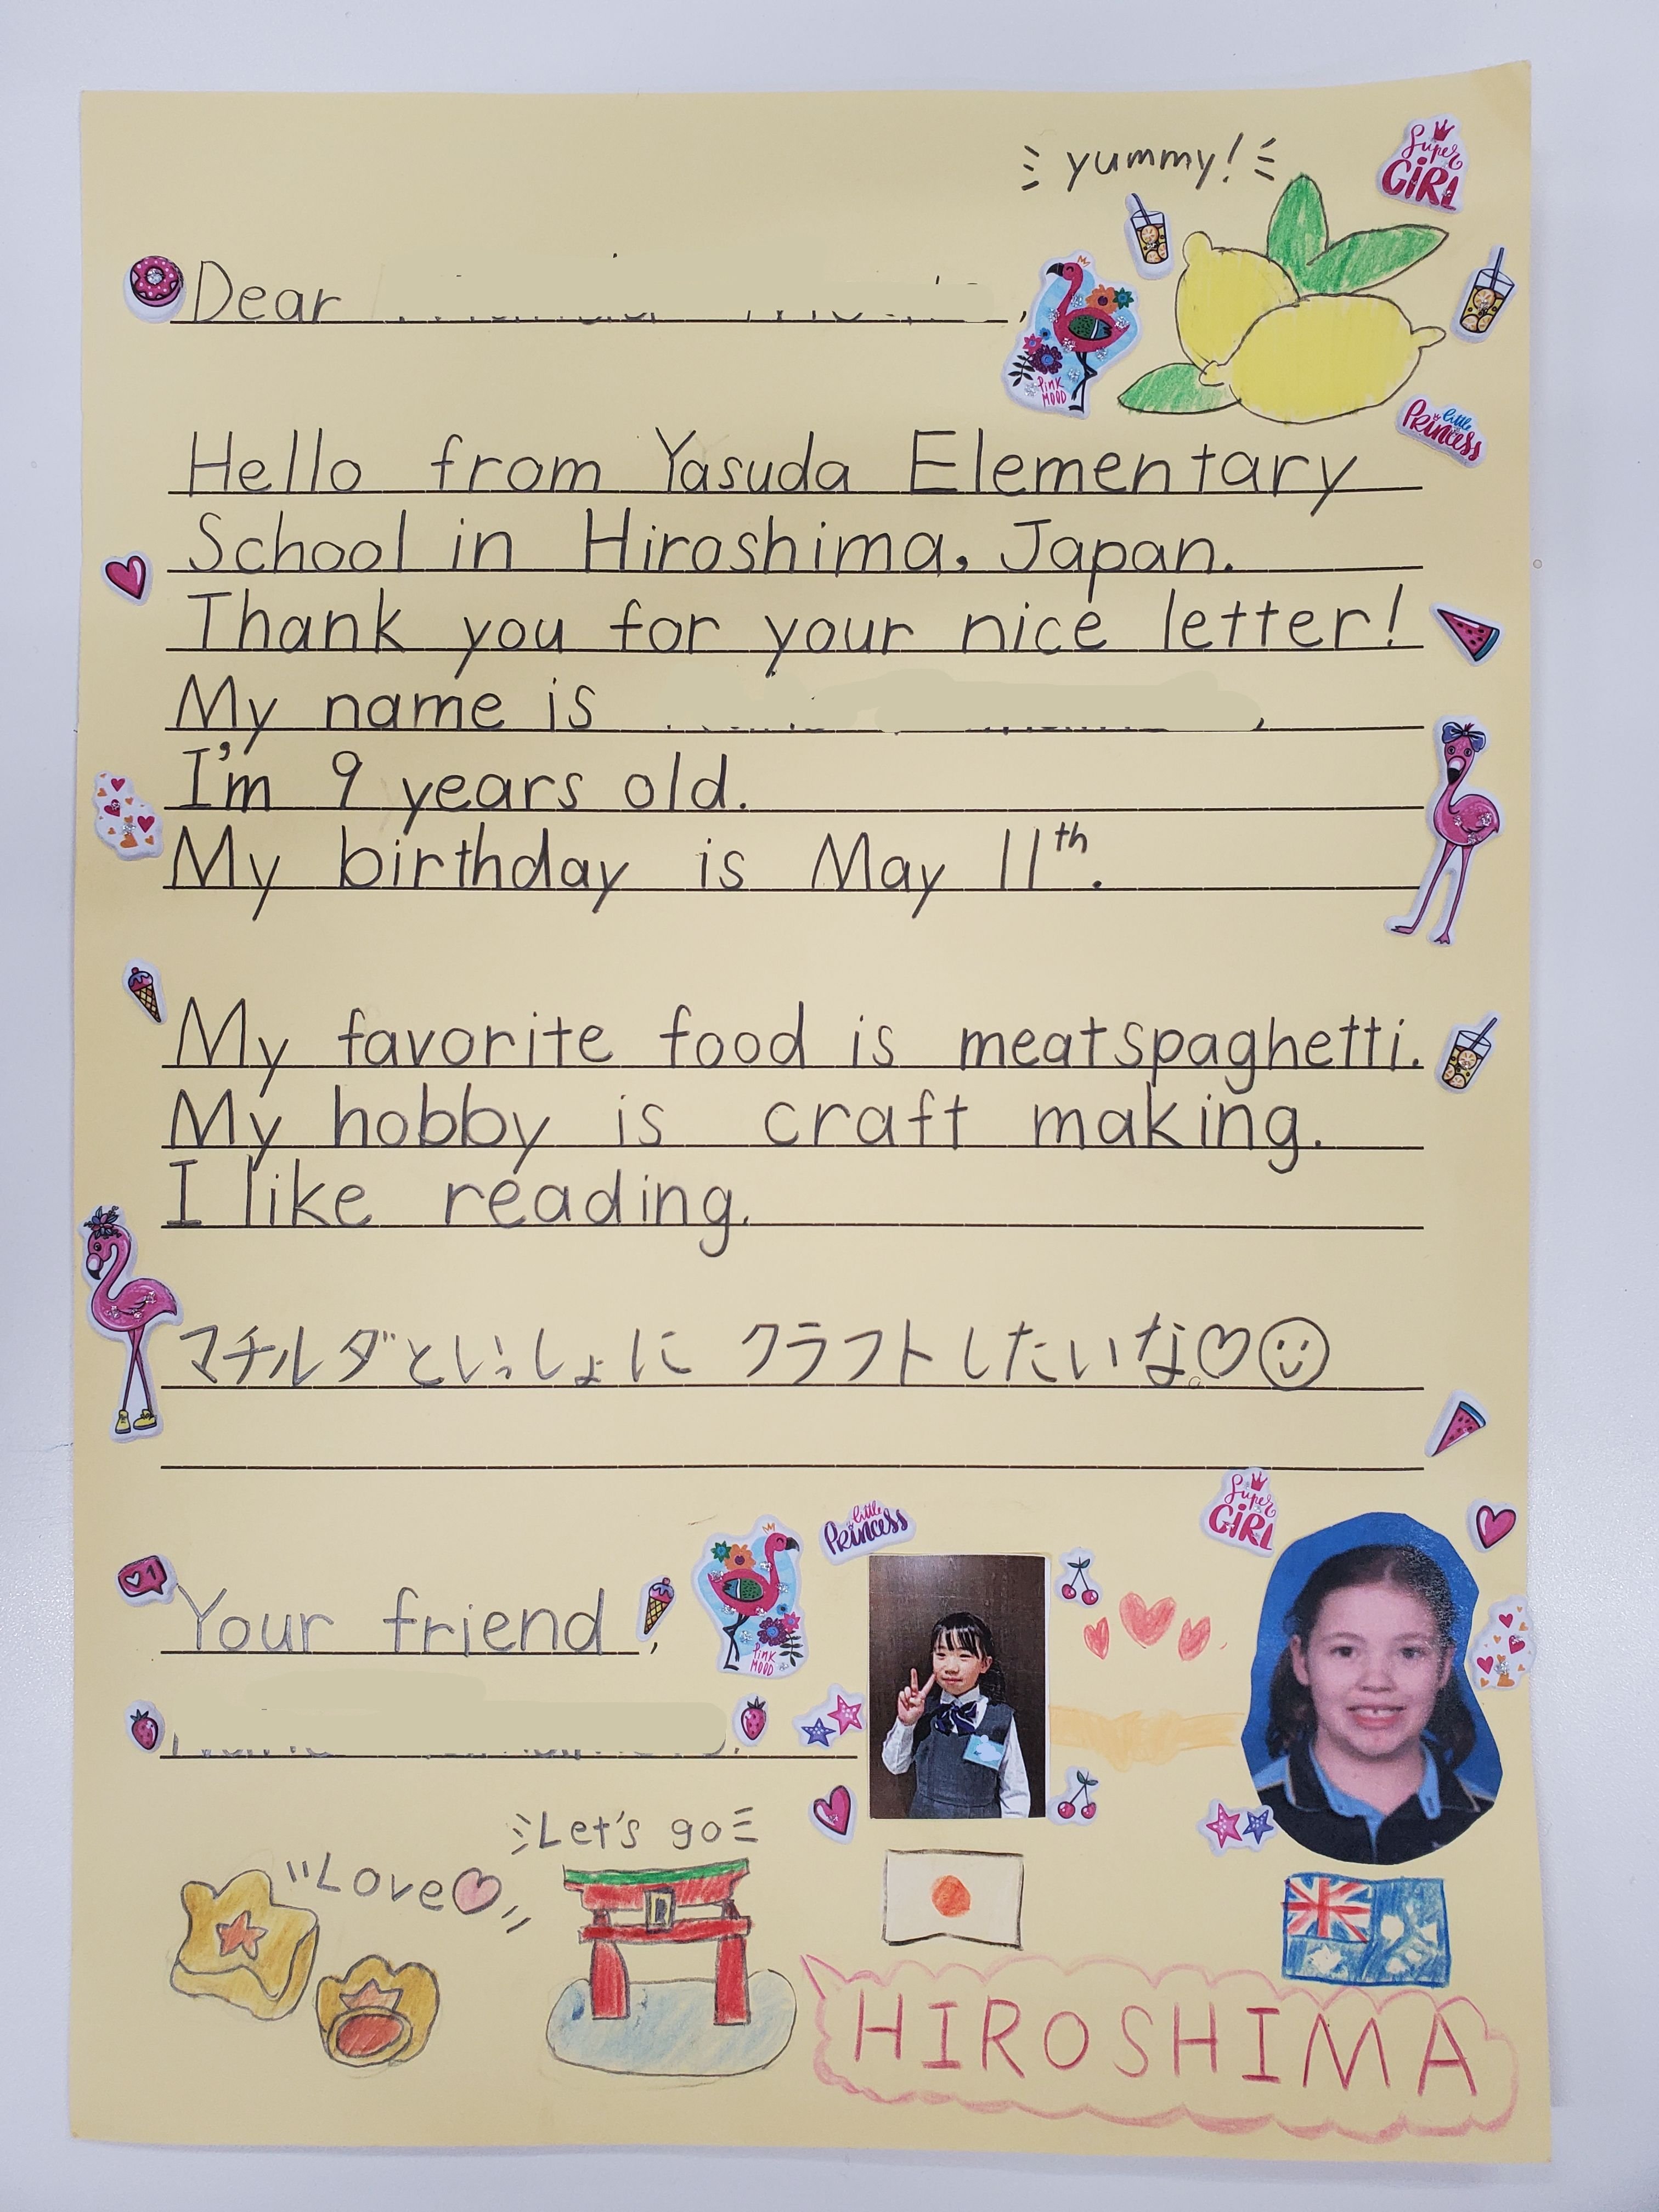 yummy!
Super
GIRL
Dear
PINK
MOOD
little
PRINCESS
Hello from Yasuda Elementary
School in Hiroshima, Japan.
Thank you for your nice letter!
My name is
I'm 9 years old.
My birthday is May 11th.
My favorite food is meatspaghetti.
My hobby is craft making.
I like reading.
マチルダといっしょに クラフトしたいな。♡☺
Super
GIRL
little
PRINCESS
1
Your friend,
PINK
MOOD
Let's go
"Love♡"
HIROSHIMA